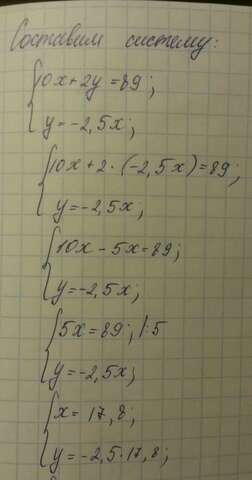 Составим систему:
10x+2y=89;
y=-2,5x;
10x+2·(-2,5x)=89;
y=-2,5x;
10x-5x=89;
y=-2,5x;
5x=89; |:5
y=-2,5x;
x=17,8;
y=-2,5·17,8;